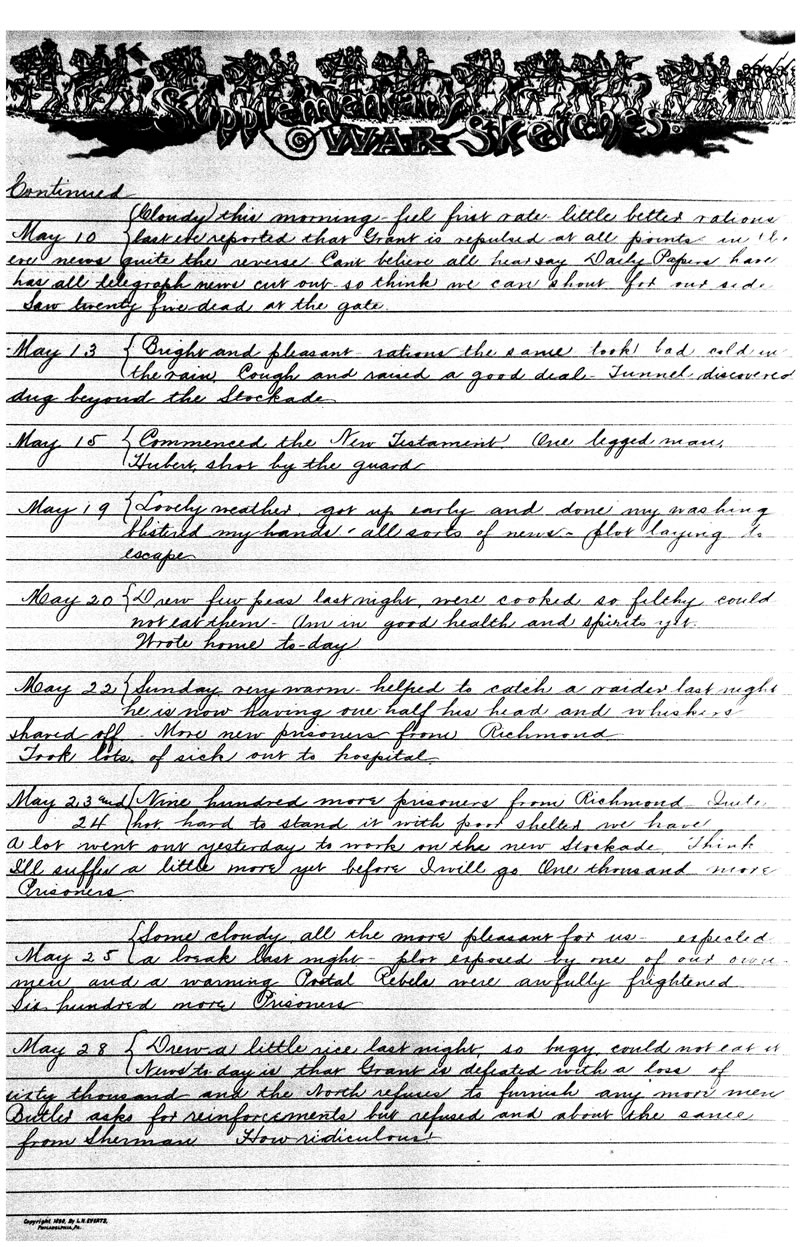 Supplementary
War Sketches.
Continued
(Cloudy) this morning - feel first rate - little better rations
May 10 last eve reported that Grant is repulsed at all points in
eve news quite the reverse Cant believe all hear say Daily Papers have
has all telegraph news cut out - so think we can shout for our side
Saw twenty five dead at the gate.
May 13 Bright and pleasant - rations the same took bad cold in
the rain. Cough and raised a good deal - Tunnel discovered
dug beyond the Stockade
May 15 Commenced the New Testament. One legged man,
Hubert, shot by the guard
May 19 Lovely weather. got up early and done my washing
blistered my hands - all sorts of news - plot laying to
escape
May 20 Drew few peas last night, were cooked so filthy could
not eat them - Am in good health and spirits yet.
Wrote home to-day
May 22 Sunday very warm - helped to catch a raider last night
he is now having one half his head and whiskers
shaved off - More new prisoners from Richmond
Took lots. of sick out to hospital
May 23 and Nine hundred more prisoners from Richmond Quite
24 hot, hard to stand it with poor shelter we have
a lot went out yesterday to work on the new Stockade. Think
I'll suffer a little more yet before I will go. One thousand more
Prisoners
Some cloudy, all the more pleasant for us - expected
May 25 a break last night - plot exposed by one of our own
men and a warning Postal Rebels were awfully frightened
Six hundred more Prisoners
May 28 Drew a little rice last night, so bugy, could not eat it
News to day is that Grant is defeated with a loss of
sixty thousand and the North refuses to furnish any more men
Butler asks for reinforcements but refused and about the same
from Sherman How ridiculous!
Copyright 1890, By L.H. EVERTS,
PHILADELPHIA, PA.